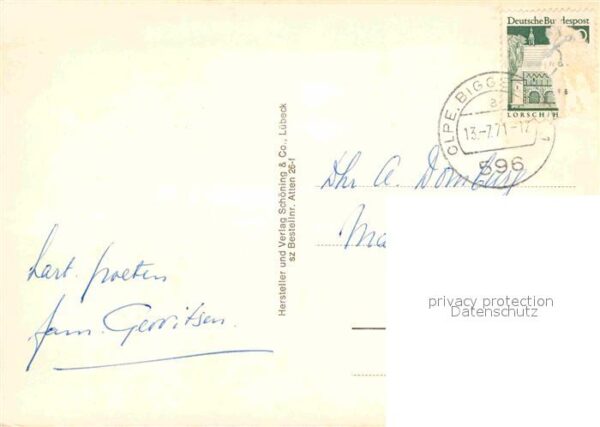 Deutsche Bundespost
LORSCH/H
OLPE, BIGGE
13.-7.71-17
596
Hersteller und Verlag Schöning & Co., Lübeck
sz Bestellnr. Atten 26-f
Dhr A. Domburg
Ma
hart. groeten
fam. Gerritsen.
privacy protection
Datenschutz